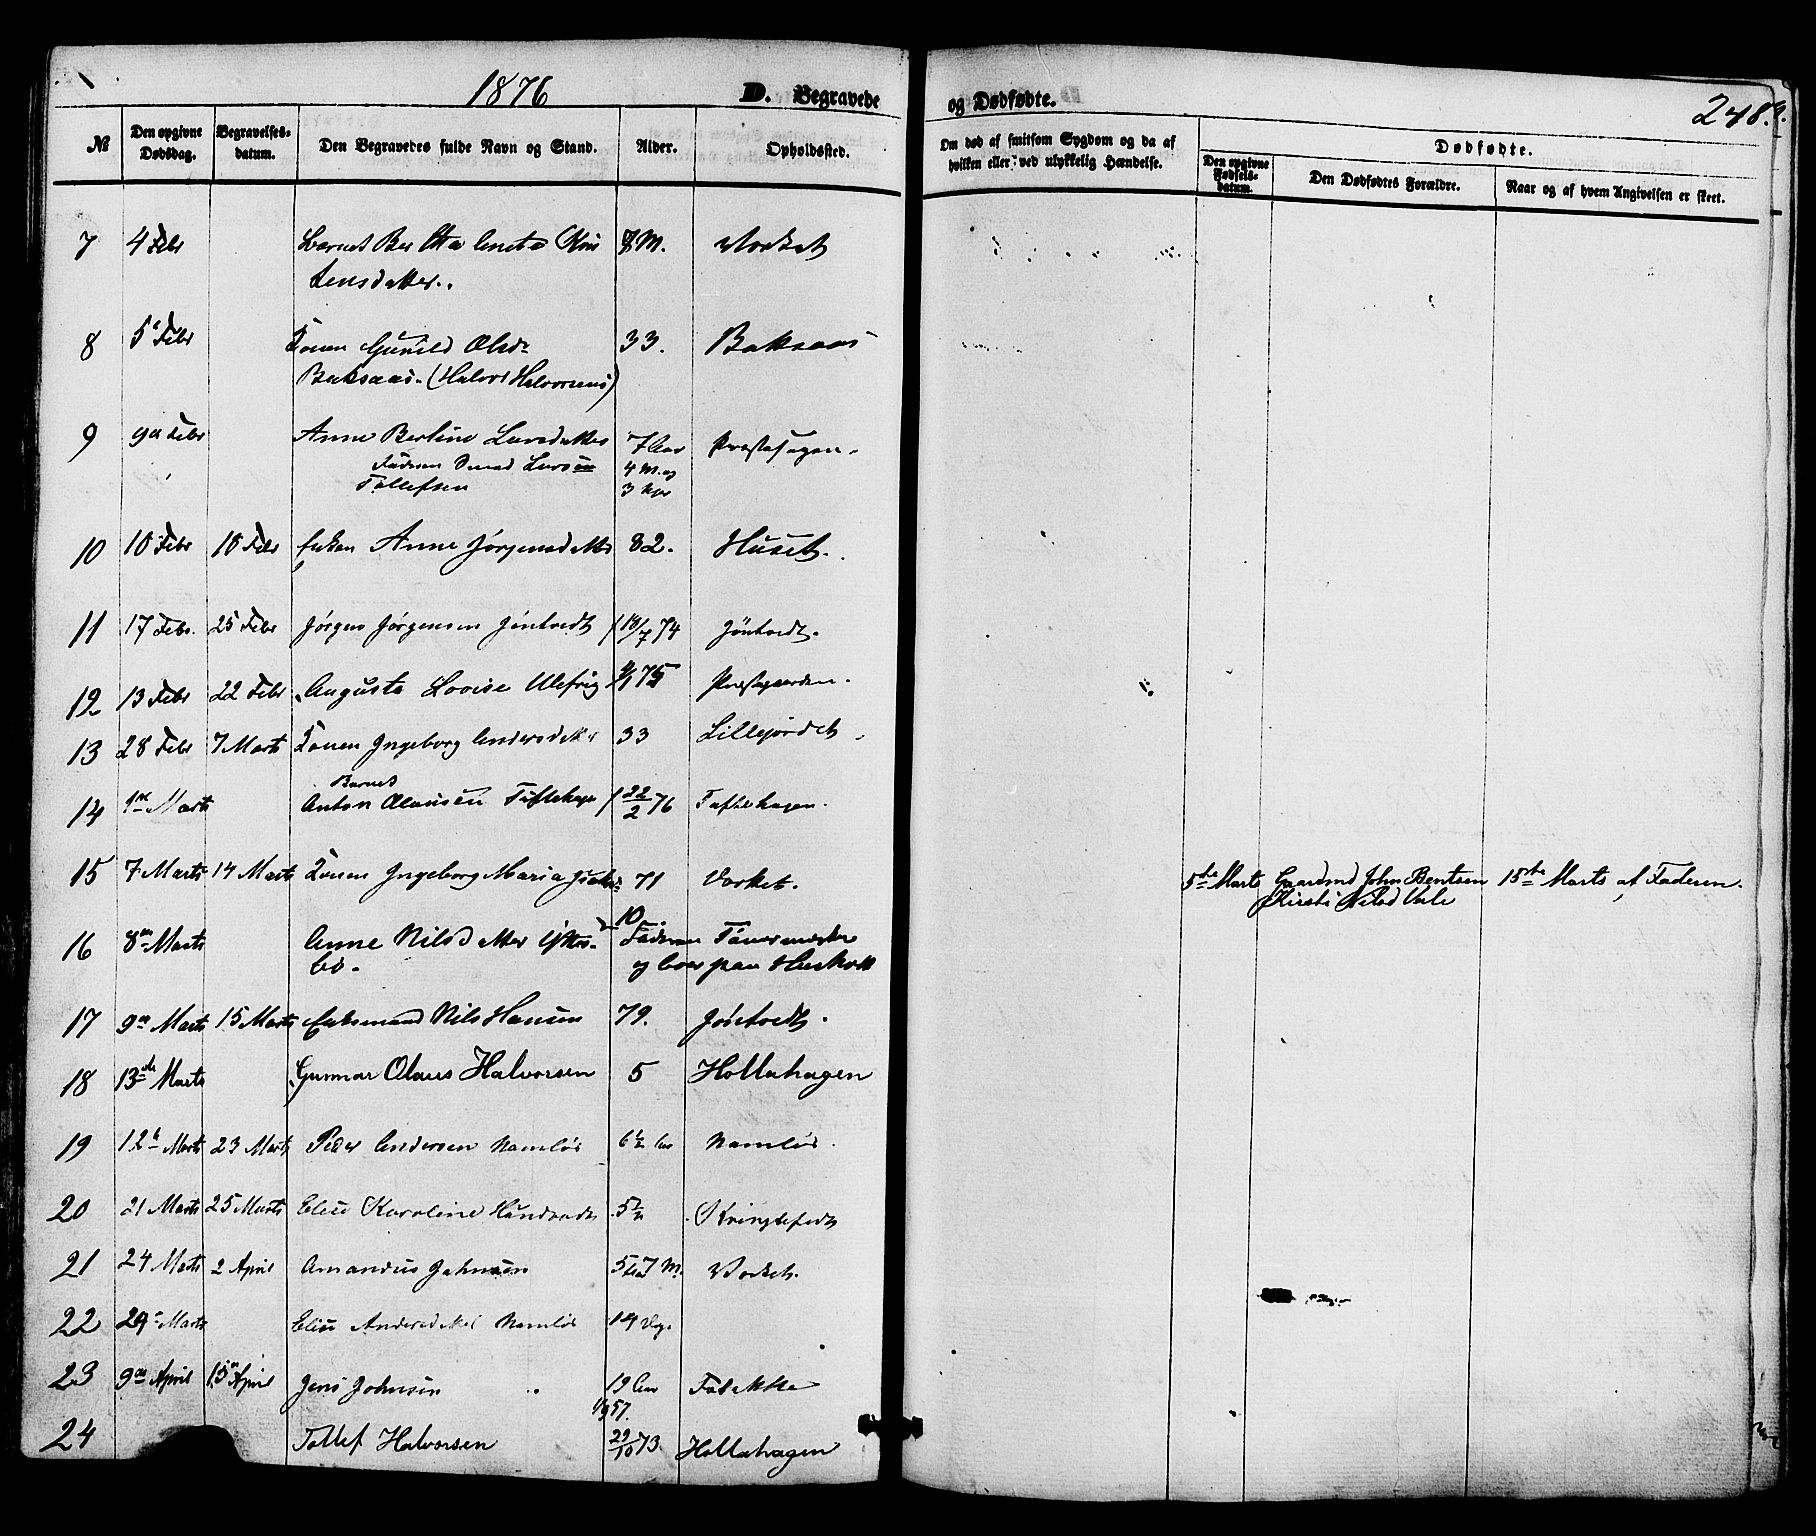 1876
D. Begravede
og Dødfødte.
248.
№
Den opgivne Dødsdag.
Begravelses-datum.
Den Begravedes fulde Navn og Stand.
Alder.
Opholdssted.
Om død af smitsom Sygdom og da af hvilken eller ved ulykkelig Hændelse.
Dødfødte.
Den opgivne Fødsels-datum.
Den Dødfødtes Forældre.
Naar og af hvem Angivelsen er skeet.
7 4 Febr Barnet Bertha Aneta 8 M. Værket
tensdatter.
8 5 Febr Konen Gunild Olsdr 33. Baksaas
Baksaas. (Halvor Halvorsens)
9 9de Febr Anne Bertine Larsdatter 7 Aar
Faderen Lars
Tollefsen
4 M. og
3 Uger
10 10 Febr 16 Febr Enken Anne Jørgensdatter 82. Huset.
11 17 Febr. 25 Febr Jørgen Jørgensen Jøntvedt 18/7 74 Jøntvedt.
12 13 Febr 22 Febr Augusta Lovise 75 Prestegaarden.
13 28 Febr 7 Marts Konen Ingeborg Andersdatter 33 Lillejordet
14 1ste Marts Barnet
Anton Olausen Tuftehagen 22/2 76 Tuftehagen.
15 7 Marts 14 Marts Konen Ingeborg Maria 71 Værket. 5te Marts Gaardmd John Bentsen 15de Marts af Faderen.
Kirsti Nilsd Vale
16 8de Marts Anne Nilsdatter 10 Faderen
bø. og boer paa
17 9de Marts 15 Marts Enkemand Nils Hansen 79. Jøntvedt.
18 13de Marts Gunnar Olaus Halvorsen 5 Hollahagen
19 12te Marts 23 Marts Peder Andersen Namløs 6 1/2 Aar Namløs.
20 21 Marts 25 Marts Elise Karoline 5 1/2
21 24 Marts 2 April Amandus Johnsen 5 Aar 7 M. Værket.
22 29 Marts Elise Andersdatter Namløs 14 Dage
23 9de April 15de April Jens Johnsen 19 Aar
57.
24 Tollef Halvorsen 29/10 73 Hollahagen